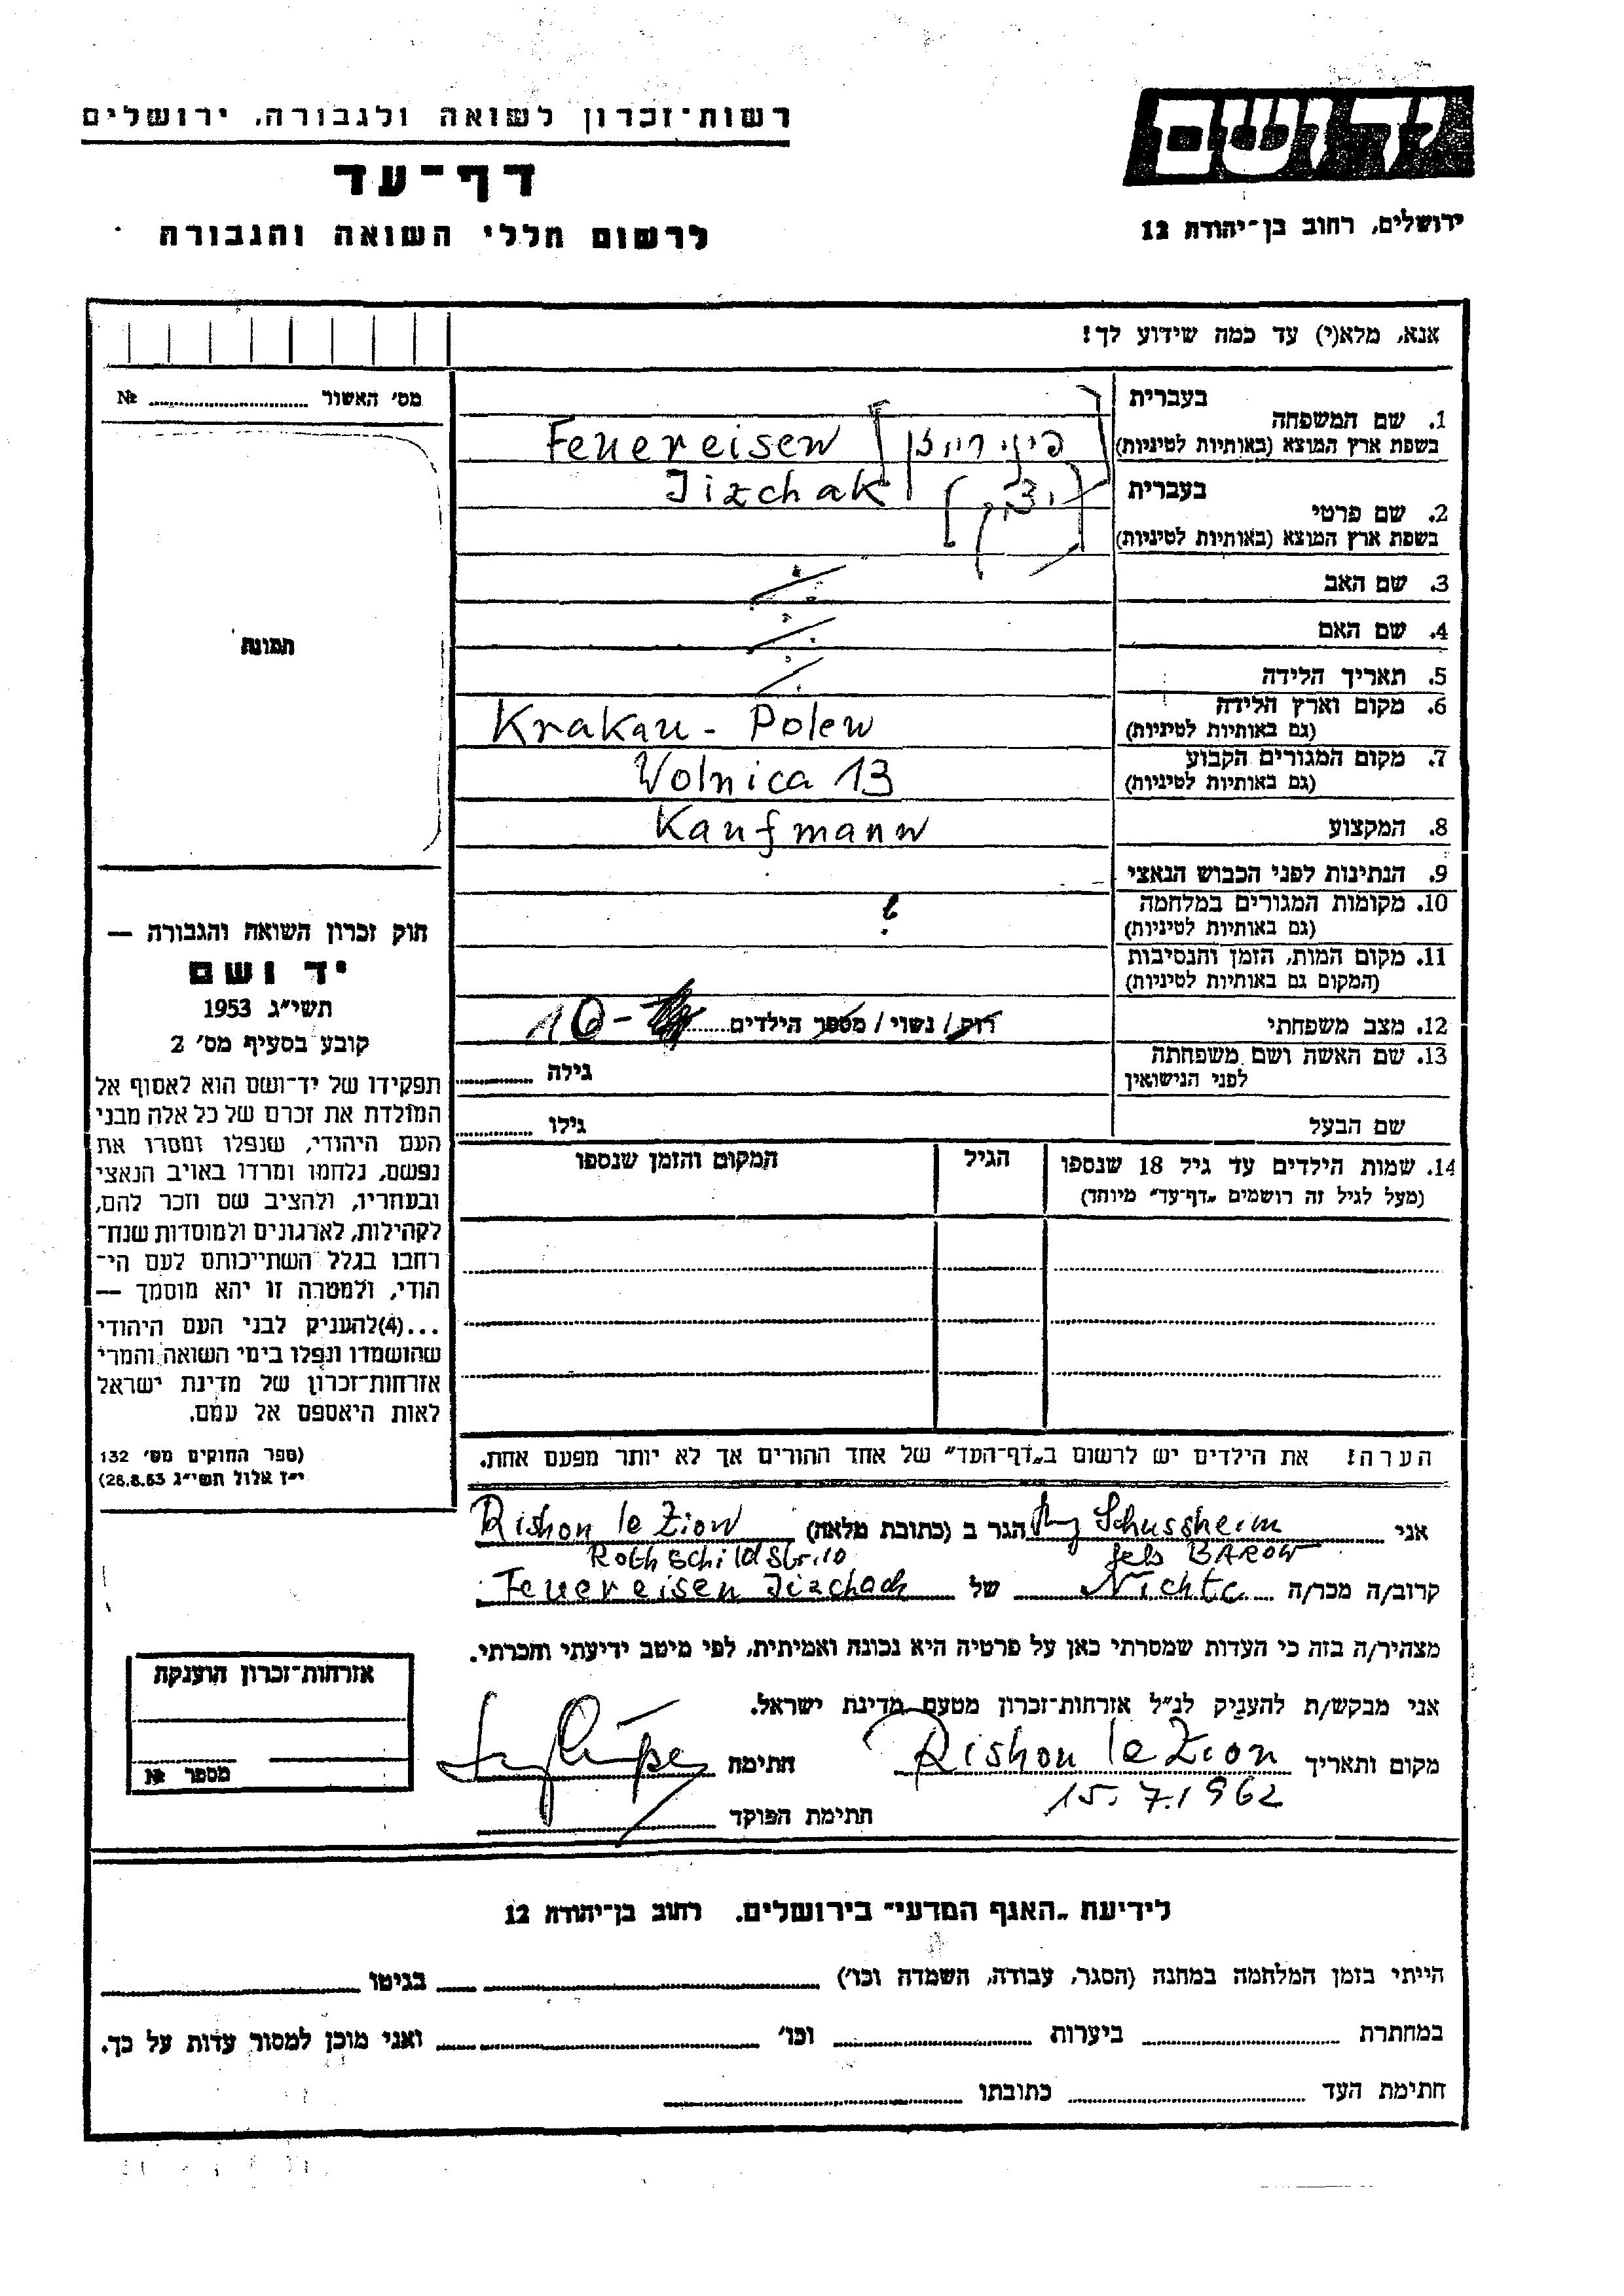 ידושם
ירושלים, רחוב בן־יהודה 12
רשות־זכרון לשואה ולגבורה, ירושלים
דף־עד
לרשום חללי השואה והגבורה
אנא, מלא(י) עד כמה שידוע לך!
מס׳ האשור № ........
תמונה
בעברית
1. שם המשפחה
בשפת ארץ המוצא (באותיות לטיניות)
Feuereisen
בעברית
2. שם פרטי
בשפת ארץ המוצא (באותיות לטיניות)
Jizchak [יצחק]
3. שם האב
4. שם האם
5. תאריך הלידה
6. מקום וארץ הלידה
(גם באותיות לטיניות)
Krakau - Polen
7. מקום המגורים הקבוע
(גם באותיות לטיניות)
Wolnica 13
8. המקצוע
Kaufmann
9. הנתינות לפני הכבוש הנאצי
10. מקומות המגורים במלחמה
(גם באותיות לטיניות)
?
11. מקום המות, הזמן והנסיבות
(המקום גם באותיות לטיניות)
12. מצב משפחתי
רוק / נשוי / מספר הילדים ........ 10 -
13. שם האשה ושם משפחתה
לפני הנישואין
גילה ........
שם הבעל
גילו ........
14. שמות הילדים עד גיל 18 שנספו
(מעל לגיל זה רושמים „דף־עד” מיוחד)
הגיל
המקום והזמן שנספו
הערה: את הילדים יש לרשום ב„דף־העד” של אחד ההורים אך לא יותר מפעם אחת.
חוק זכרון השואה והגבורה —
יד ושם
תשי״ג 1953
קובע בסעיף מס׳ 2
תפקידו של יד־ושם הוא לאסוף אל
המולדת את זכרם של כל אלה מבני
העם היהודי, שנפלו ומסרו את
נפשם, נלחמו ומרדו באויב הנאצי
ובעוזריו, ולהציב שם וזכר להם,
לקהילות, לארגונים ולמוסדות שנח־
רחבו בגלל השתייכותם לעם הי־
הודי, ולמטרה זו יהא מוסמך —
...(4)להעניק לבני העם היהודי
שהושמדו ונפלו בימי השואה והמרי
אזרחות־זכרון של מדינת ישראל
לאות היאספם אל עמם.
(ספר החוקים מס׳ 132
י״ז אלול תשי״ג 28.8.53)
אני Schussheim הגר ב (כתובת מלאה) Rishon le Zion
geb BAROW Rothschildstr. 10
קרוב/ה מכר/ה Nichte של Feuereisen Jizchack
מצהיר/ה בזה כי העדות שמסרתי כאן על פרטיה היא נכונה ואמיתית, לפי מיטב ידיעתי והכרתי.
אני מבקש/ת להעניק לנ״ל אזרחות־זכרון מטעם מדינת ישראל.
מקום ותאריך Rishon le Zion חתימה
15.7.1962
חתימת הפוקד
אזרחות־זכרון הוענקה
מספר №
לידיעת „האגף המדעי” בירושלים. רחוב בן־יהודה 12
הייתי בזמן המלחמה במחנה (הסגר, עבודה, השמדה וכו׳) ........ בגיטו ........
במחתרת ........ ביערות ........ וכו׳ ........ ואני מוכן למסור עדות על כך.
חתימת העד ........ כתובתו ........